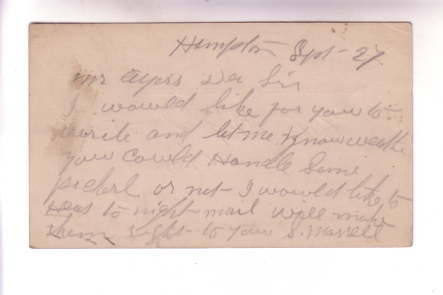 Hampton Sept - 27
Mr Ayers Dea Sir
I would like for you to
write and let me Know weathe
you Could Handle Some
pickerl or not I would like to
Hear to night mail will make
them right to you S.